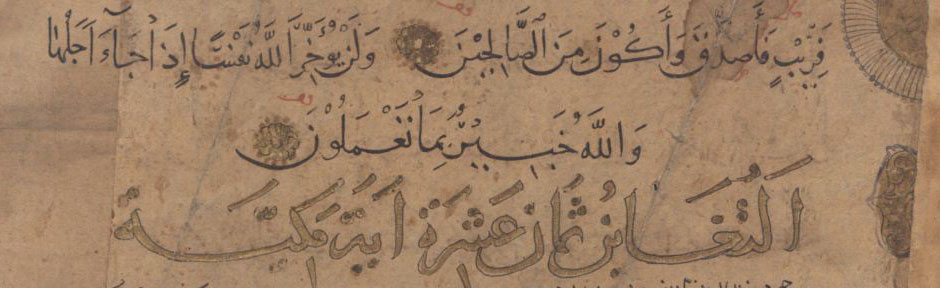 قَرِيْبٍ فَأَصَّدَّقَ وَأَكُوْنَ مِنَ الصَّالِحِيْنَ وَلَنْ يُؤَخِّرَ اللَّهُ نَفْسًا إِذَا جَآءَ أَجَلُهَا
وَاللَّهُ خَبِيْرٌ بِمَا تَعْمَلُوْنَ
اَلتَّغَابُنِ ثَمَانِ عَشْرَةَ اٰيَةً مَكِّيَّة